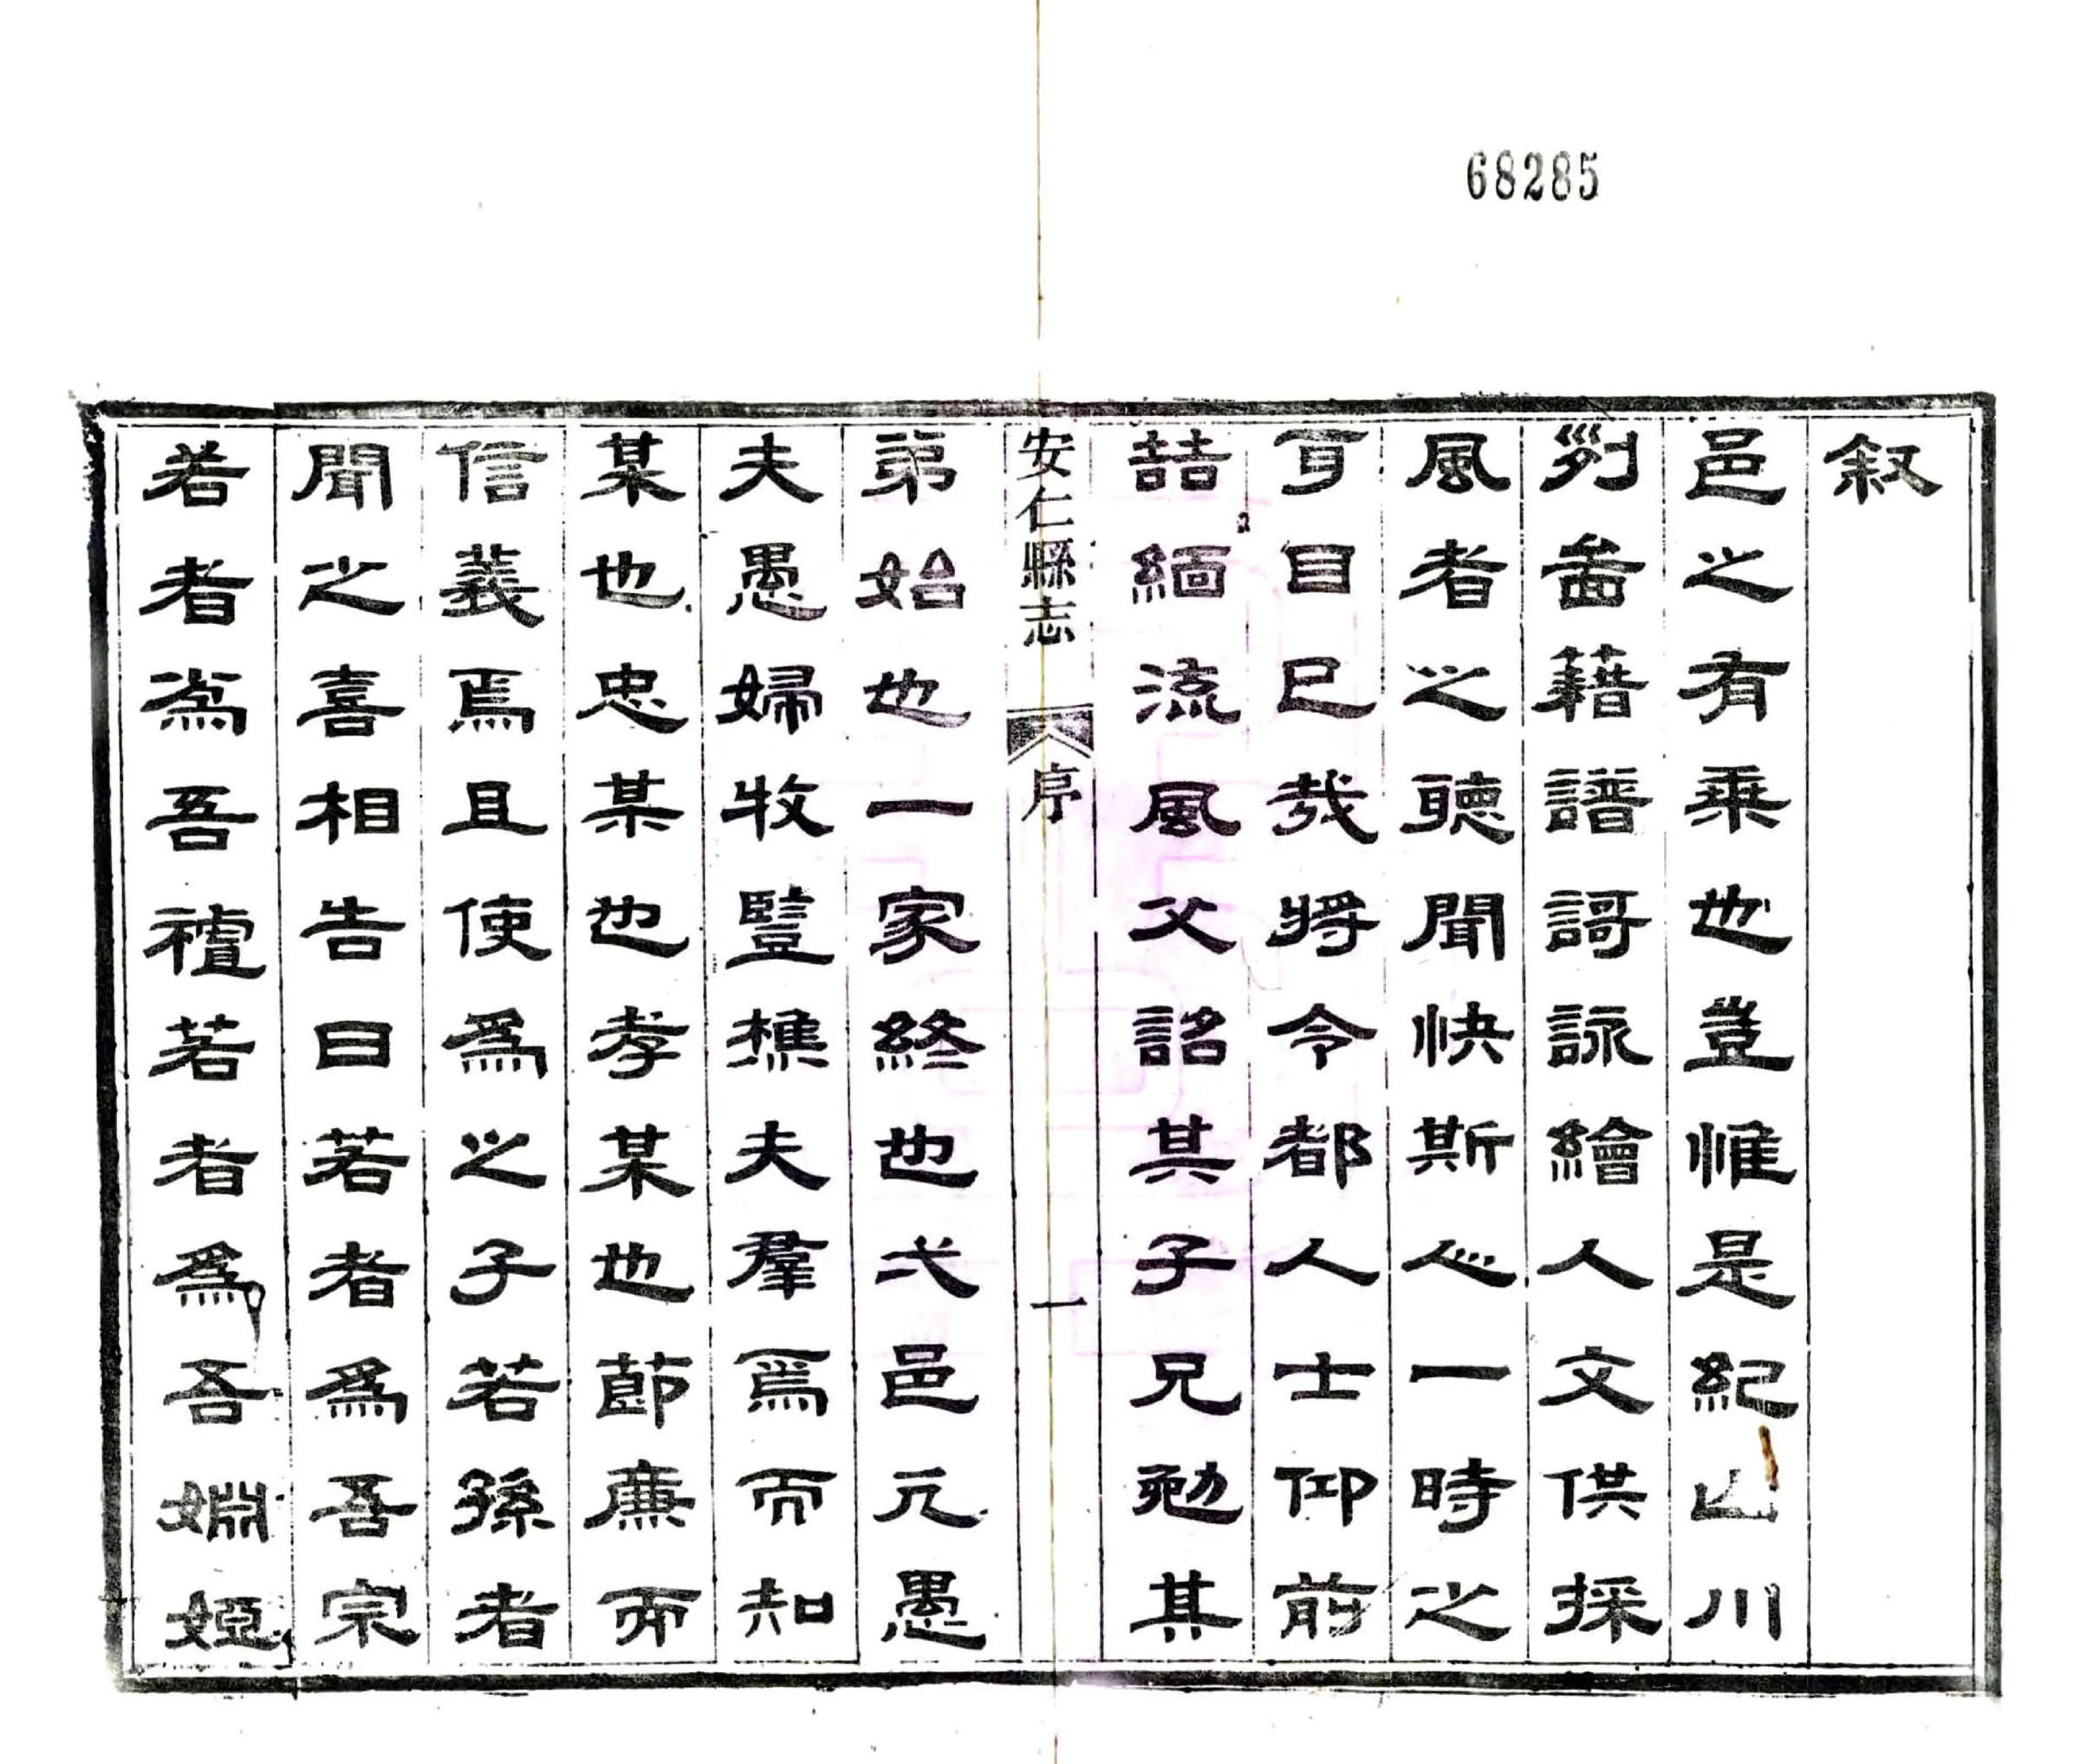 68285
叙
邑之有乘也豈惟是紀山川
列藉譜謌詠繪人文供採
風者之聽聞快斯心一時之
耳目已哉將令都人士仰前
喆緬流風父詔其子兄勉其
安仁縣志 序 一
弟始也一家終也弌邑元愚
夫愚婦牧豎樵夫羣焉而知
某也忠某也孝某也節廉而
信義焉且使爲之子若孫者
聞之喜相告曰若者爲吾宗
若者爲吾若者爲吾婣婭